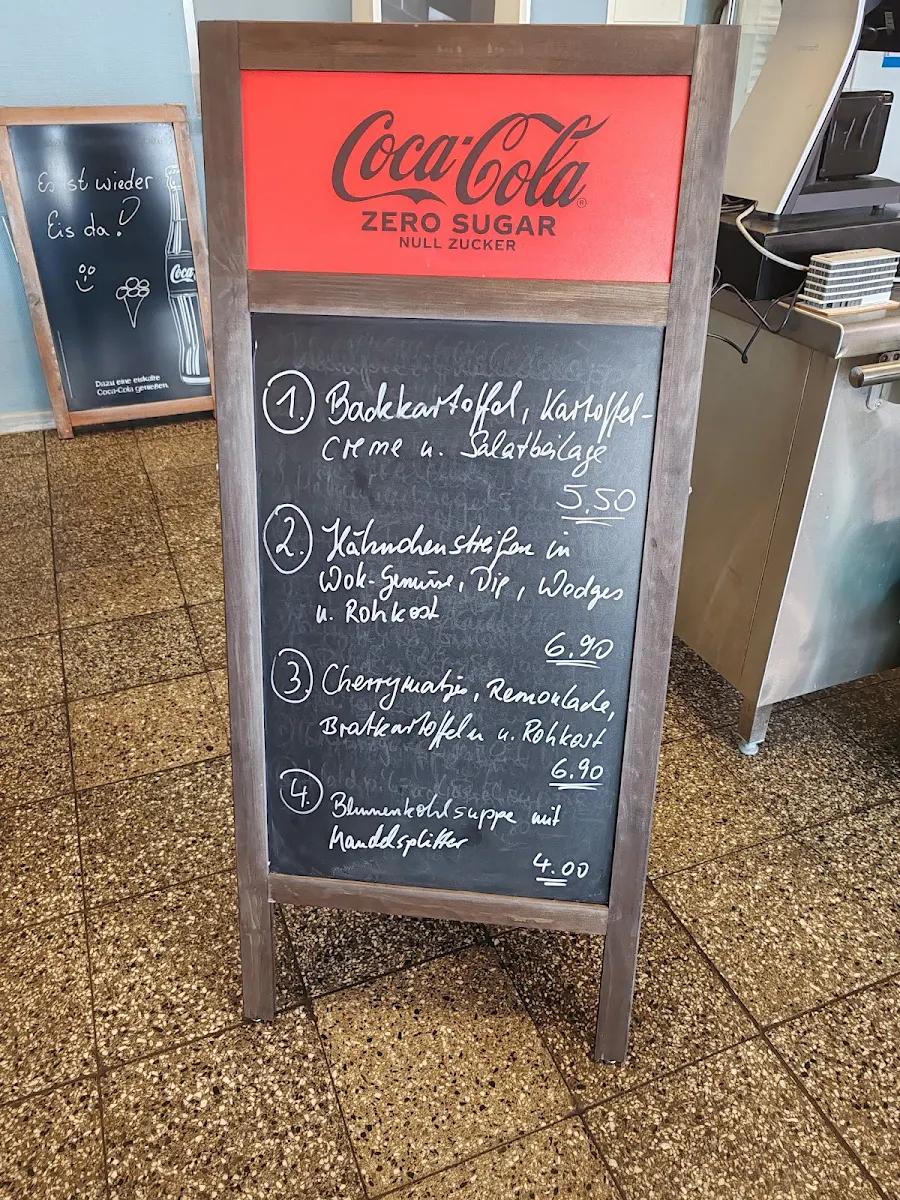 Es ist wieder
Eis da!
Coca
Dazu eine eiskalte
Coca-Cola genießen.
Coca-Cola
ZERO SUGAR
NULL ZUCKER
1. Backkartoffel, Kartoffel-
creme u. Salatbeilage
5.50
2. Hähnchenstreifen in
Wok-Gemüse, Dip, Wedges
u. Rohkost
6.90
3. Cherrymatjes, Remoulade,
Bratkartoffeln u. Rohkost
6.90
4. Blumenkohlsuppe mit
Mandelsplitter
4.00